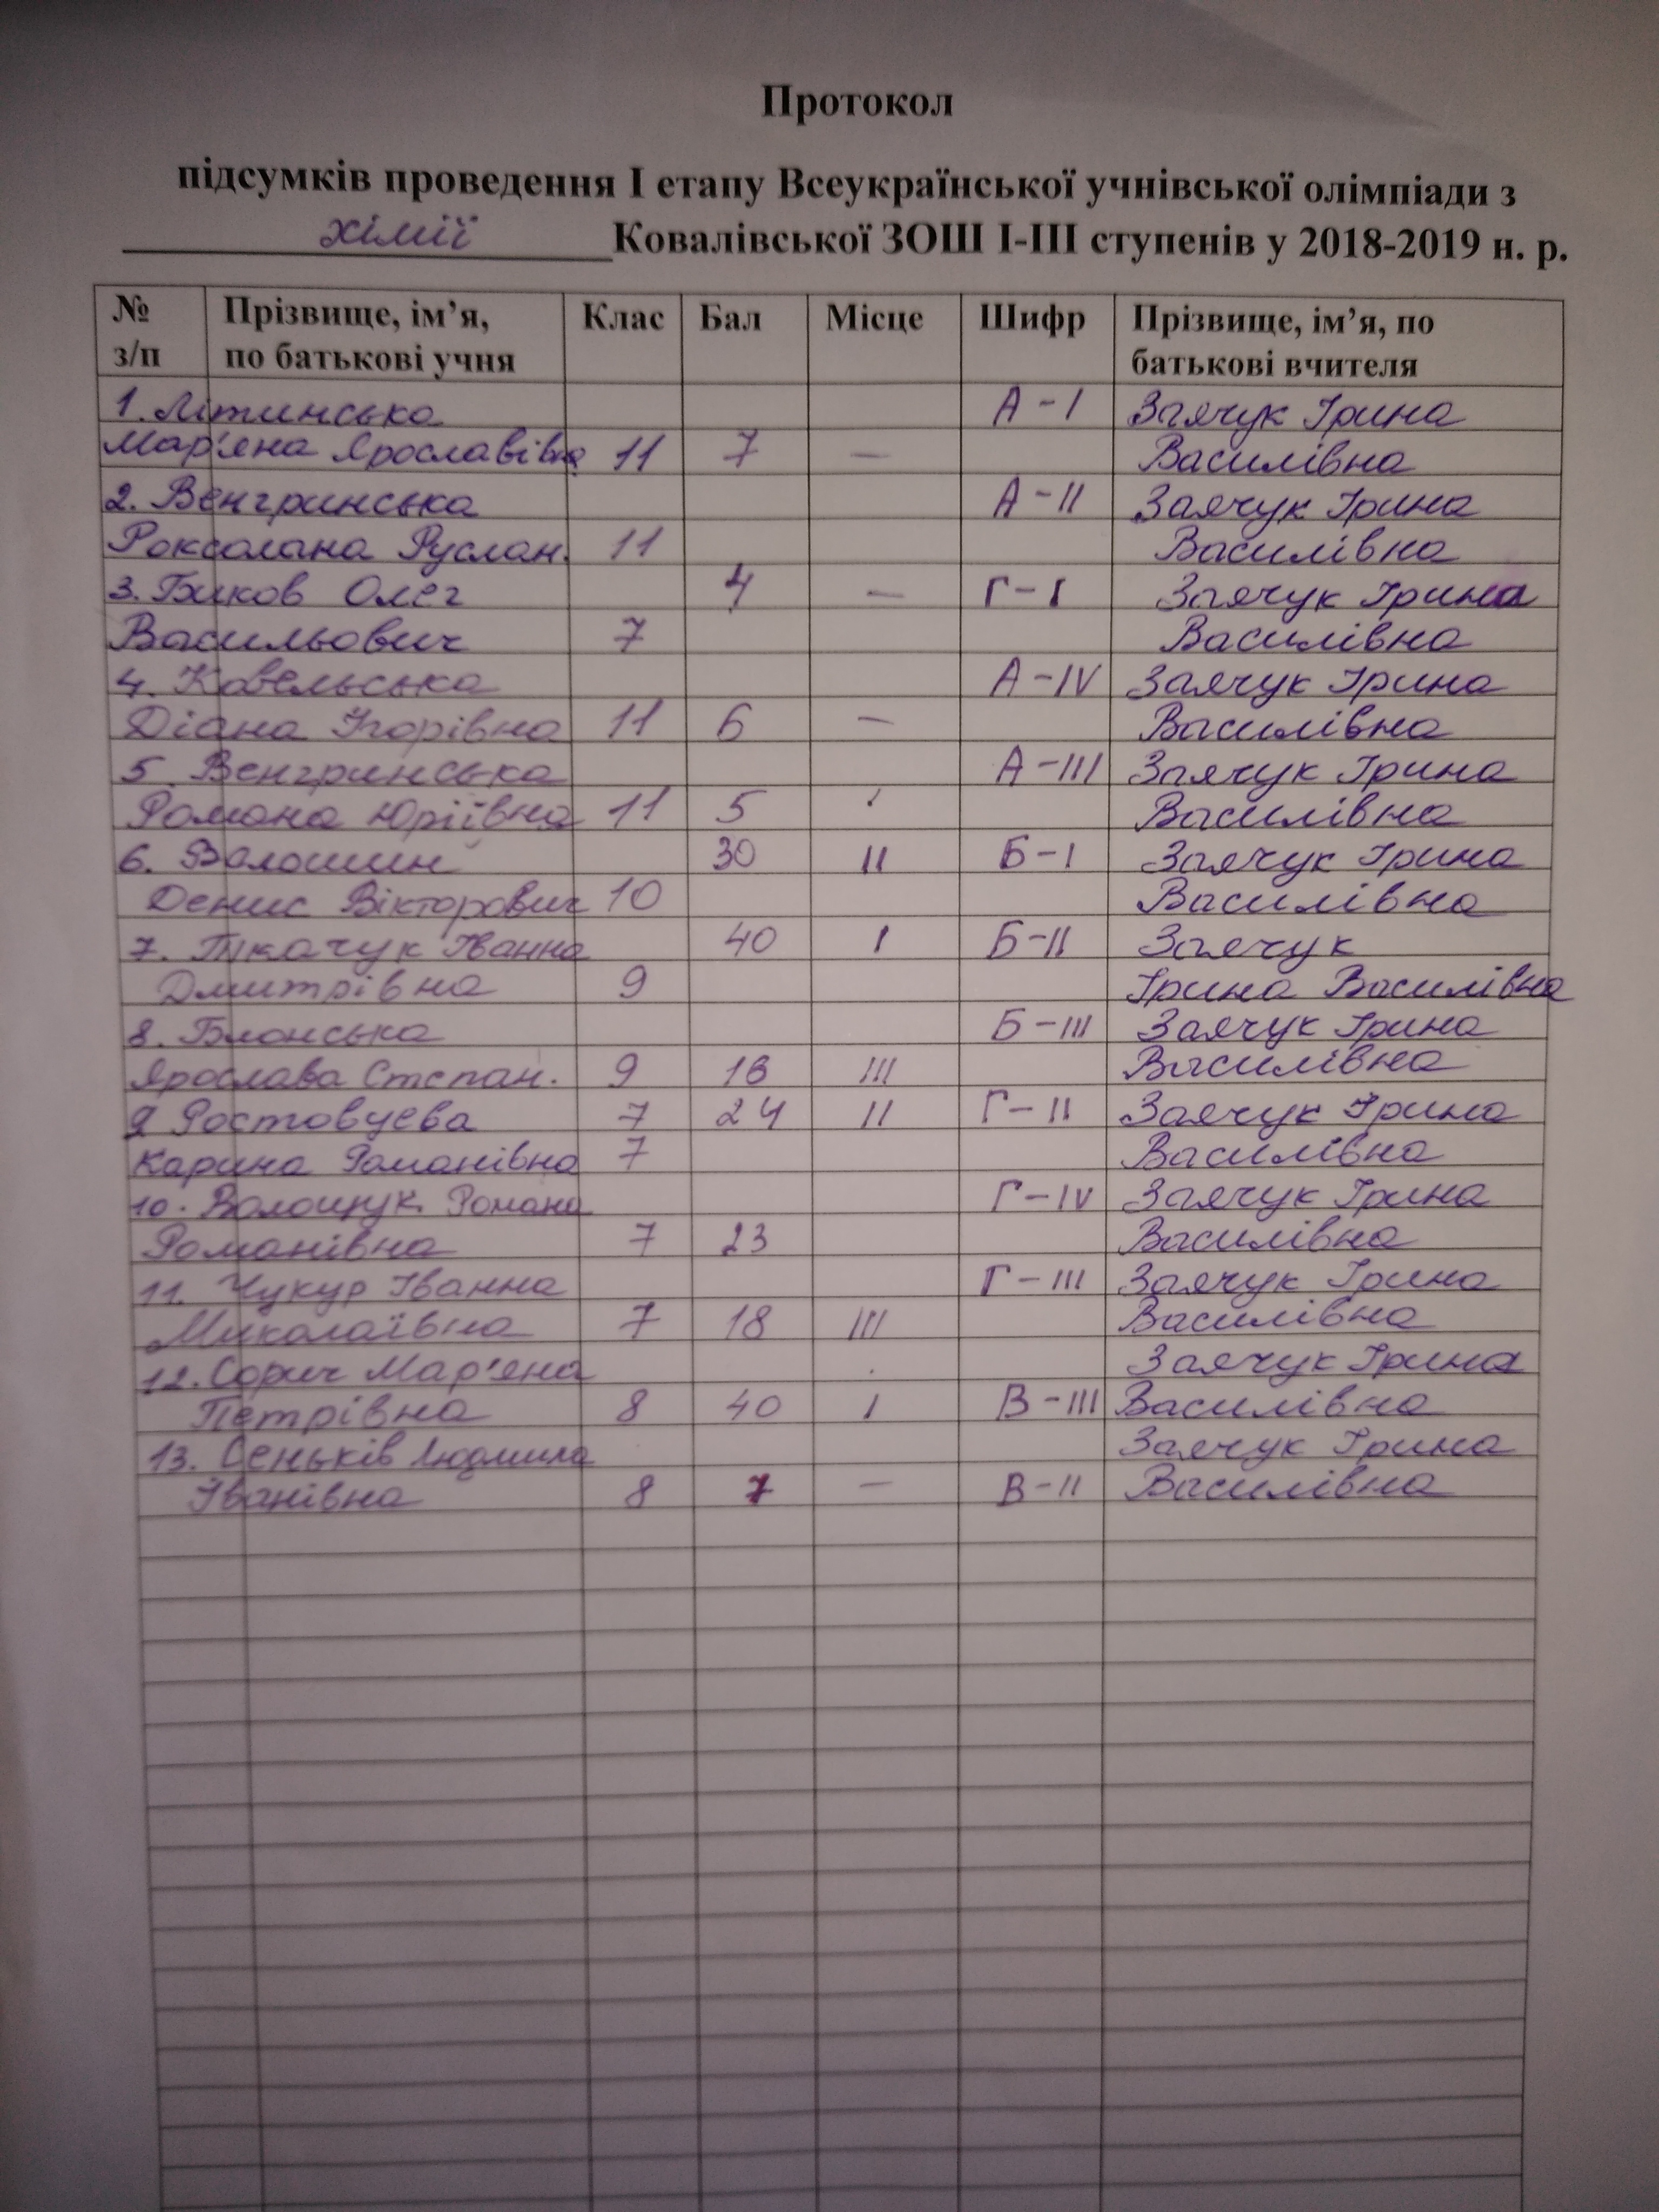 Протокол
підсумків проведення І етапу Всеукраїнської учнівської олімпіади з
хімії Ковалівської ЗОШ І-ІІІ ступенів у 2018-2019 н. р.
№ Прізвище, ім’я, Клас Бал Місце Шифр Прізвище, ім’я, по
з/п по батькові учня батькові вчителя
1. Літинська А-І Заячук Ірина
Мар'яна Ярославівна 11 7 — Василівна
2. Венгринська А-ІІ Заячук Ірина
Роксолана Руслан. 11 Василівна
3. Биков Олег 4 — Г-І Заячук Ірина
Васильович 7 Василівна
4. Ковельська А-IV Заячук Ірина
Діана Ігорівна 11 6 — Василівна
5 Венгринська А-ІІІ Заячук Ірина
Романа Юріївна 11 5 Василівна
6. Волошин 30 ІІ Б-І Заячук Ірина
Денис Вікторович 10 Василівна
7. Ткачук Іванна 40 І Б-ІІ Заячук
Дмитрівна 9 Ірина Василівна
8. Блонська Б-ІІІ Заячук Ірина
Ярослава Степан. 9 ІІІ Василівна
9 Ростовцева 7 24 ІІ Г-ІІ Заячук Ірина
Карина Романівна 7 Василівна
10. Волощук Романа Г-IV Заячук Ірина
Романівна 7 23 Василівна
11. Чукур Іванна Г-ІІІ Заячук Ірина
Миколаївна 7 18 ІІІ Василівна
12. Сорич Мар'яна Заячук Ірина
Петрівна 8 40 І В-ІІІ Василівна
13. Сеньків Людмила Заячук Ірина
Іванівна 8 7 — В-ІІ Василівна